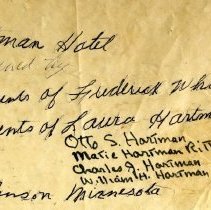 man Hotel
ned by
ents of Frederick Whi
ents of Laura Hartm
Otto S. Hartman
Marie Hartman Ritt
Charles J. Hartman
William H. Hartman
nson Minnesota